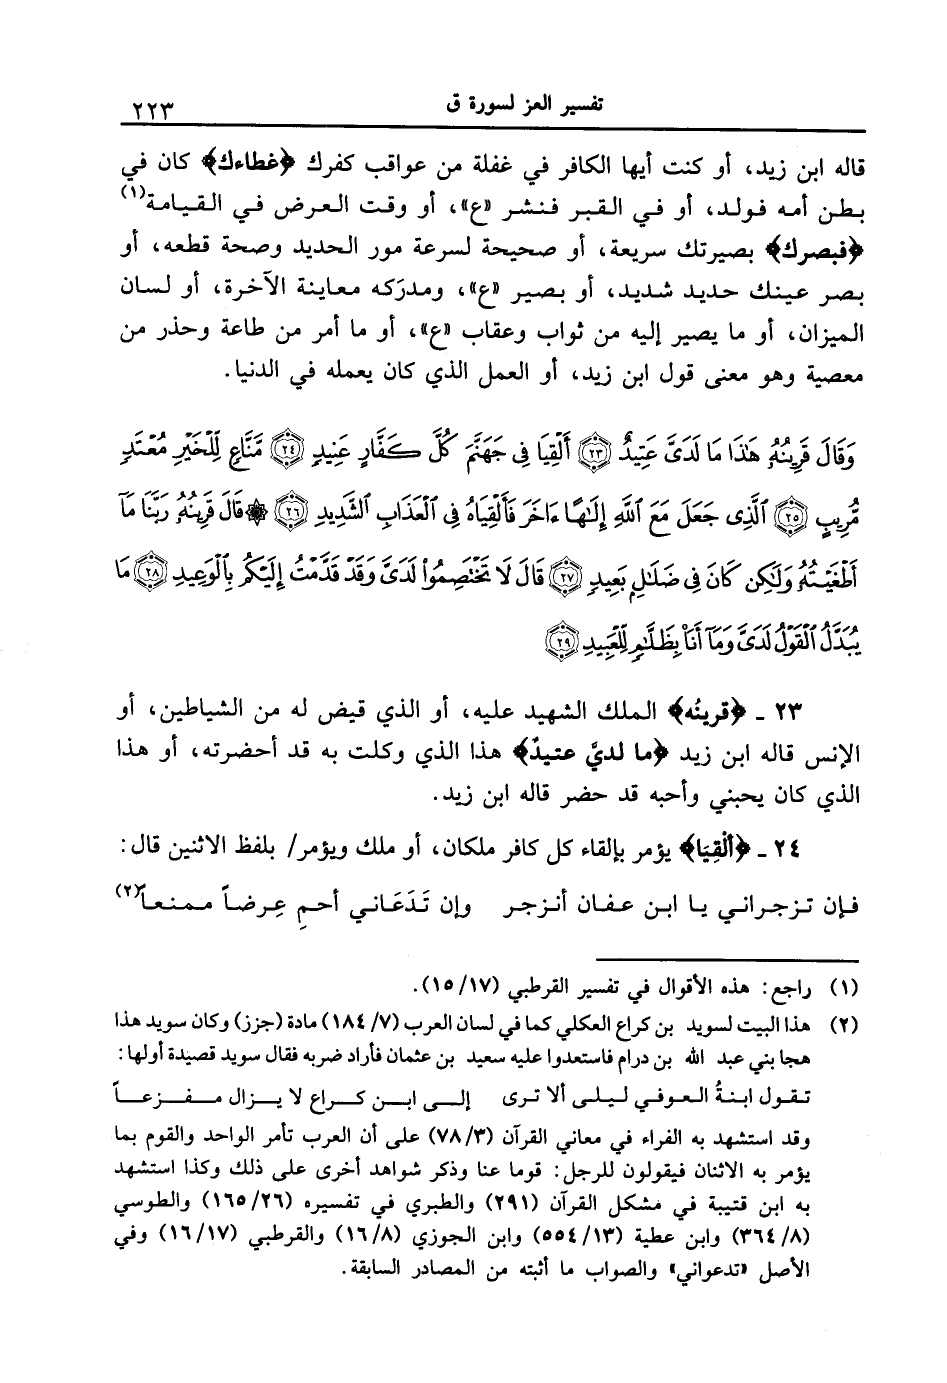 تفسير العز لسورة ق ٢٢٣
قاله ابن زيد، أو كنت أيها الكافر في غفلة من عواقب كفرك ﴿غطاءك﴾ كان في
بطن أمه فولد، أو في القبر فنشر «ع»، أو وقت العرض في القيامة(١)
﴿فبصرك﴾ بصيرتك سريعة، أو صحيحة لسرعة مور الحديد وصحة قطعه، أو
بصر عينك حديد شديد، أو بصير «ع»، ومدرَكه معاينة الآخرة، أو لسان
الميزان، أو ما يصير إليه من ثواب وعقاب «ع»، أو ما أمر من طاعة وحذر من
معصية وهو معنى قول ابن زيد، أو العمل الذي كان يعمله في الدنيا.
وَقَالَ قَرِينُهُۥ هَٰذَا مَا لَدَىَّ عَتِيدٌ ٢٣ أَلْقِيَا فِى جَهَنَّمَ كُلَّ كَفَّارٍ عَنِيدٍ ٢٤ مَّنَّاعٍ لِّلْخَيْرِ مُعْتَدٍ
مُّرِيبٍ ٢٥ ٱلَّذِى جَعَلَ مَعَ ٱللَّهِ إِلَٰهًا ءَاخَرَ فَأَلْقِيَاهُ فِى ٱلْعَذَابِ ٱلشَّدِيدِ ٢٦ ۞ قَالَ قَرِينُهُۥ رَبَّنَا مَآ
أَطْغَيْتُهُۥ وَلَٰكِن كَانَ فِى ضَلَٰلٍۭ بَعِيدٍ ٢٧ قَالَ لَا تَخْتَصِمُوا۟ لَدَىَّ وَقَدْ قَدَّمْتُ إِلَيْكُم بِٱلْوَعِيدِ ٢٨ مَا
يُبَدَّلُ ٱلْقَوْلُ لَدَىَّ وَمَآ أَنَا۠ بِظَلَّٰمٍ لِّلْعَبِيدِ ٢٩
٢٣ - ﴿قرينُه﴾ الملك الشهيد عليه، أو الذي قيض له من الشياطين، أو
الإنس قاله ابن زيد ﴿ما لديَّ عتيدٌ﴾ هذا الذي وكلت به قد أحضرته، أو هذا
الذي كان يحبني وأحبه قد حضر قاله ابن زيد.
٢٤ - ﴿أَلْقِيَا﴾ يؤمر بإلقاء كل كافر ملكان، أو ملك ويؤمر/ بلفظ الاثنين قال:
فإن تزجراني يا ابن عفان أنزجر وإن تَدَعَاني أحمِ عِرضاً ممنعاً(٢)
(١) راجع: هذه الأقوال في تفسير القرطبي (١٥/١٧).
(٢) هذا البيت لسويد بن كراع العكلي كما في لسان العرب (١٨٤/٧) مادة (جزز) وكان سويد هذا
هجا بني عبد الله بن درام فاستعدوا عليه سعيد بن عثمان فأراد ضربه فقال سويد قصيدة أولها:
تقول ابنةُ العوفي ليلى ألا ترى إلى ابن كراع لا يزال مفزعاً
وقد استشهد به الفراء في معاني القرآن (٧٨/٣) على أن العرب تأمر الواحد والقوم بما
يؤمر به الاثنان فيقولون للرجل: قوما عنا وذكر شواهد أخرى على ذلك وكذا استشهد
به ابن قتيبة في مشكل القرآن (٢٩١) والطبري في تفسيره (١٦٥/٢٦) والطوسي
(٣٦٤/٨) وابن عطية (٥٥٤/١٣) وابن الجوزي (١٦/٨) والقرطبي (١٦/١٧) وفي
الأصل «تدعواني» والصواب ما أثبته من المصادر السابقة.